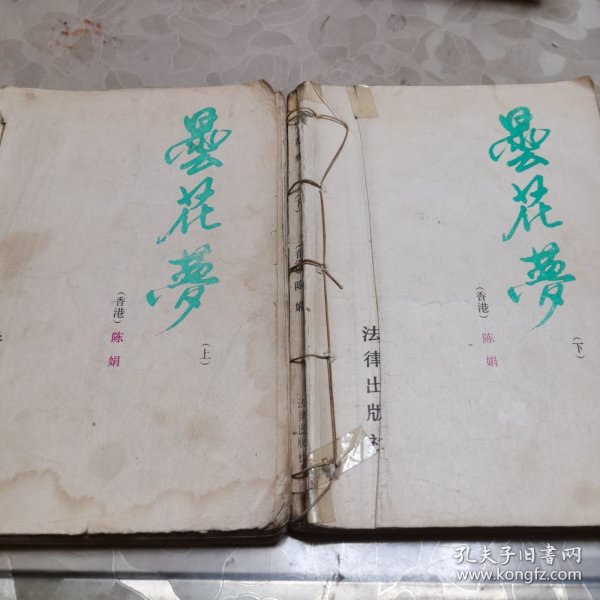 曇花夢
（上）
（香港）陈娟
曇花夢
（下）
（香港）陈娟
法律出版社
（香港）陈娟
法律出版社
孔夫子旧书网
www.kongfz.com